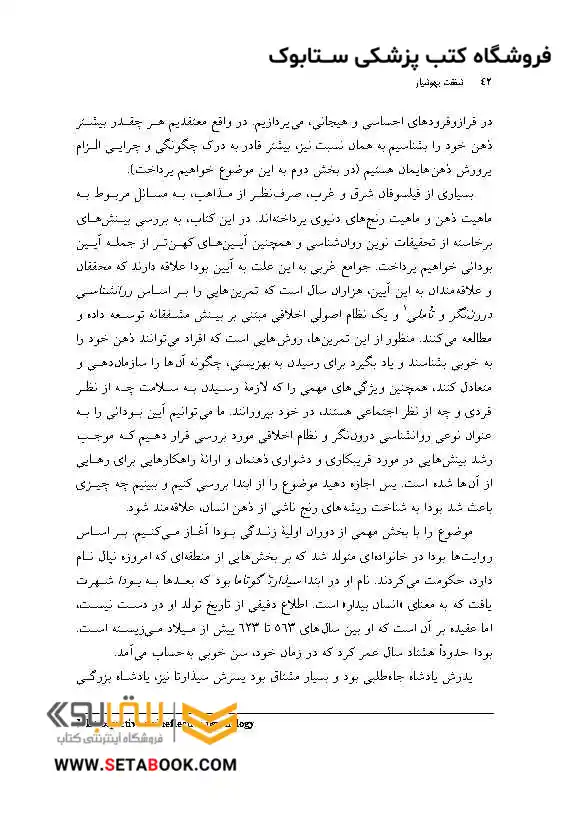 فروشگاه کتب پزشکی ستابوک
٤٢ شفقت بهوشیار
در فرازوفرودهای احساسی و هیجانی، می‌پردازیم. در واقع معتقدیم هر چقدر بیشتر
ذهن خود را بشناسیم به همان نسبت نیز، بیشتر قادر به درک چگونگی و چرایی الزام
پرورش ذهن‌هایمان هستیم (در بخش دوم به این موضوع خواهیم پرداخت).
بسیاری از فیلسوفان شرق و غرب، صرف‌نظر از مذاهب، به مسائل مربوط به
ماهیت ذهن و ماهیت رنج‌های دنیوی پرداخته‌اند. در این کتاب، به بررسی بینش‌های
برخاسته از تحقیقات نوین روان‌شناسی و همچنین آیین‌های کهن‌تر از جمله آیین
بودائی خواهیم پرداخت. جوامع غربی به این علت به آیین بودا علاقه دارند که محققان
و علاقه‌مندان به این آیین، هزاران سال است که تمرین‌هایی را بر اساس روانشناسی
درون‌نگر و تأملی۱ و یک نظام اصولی اخلاقی مبتنی بر بینش مشفقانه توسعه داده و
مطالعه می‌کنند. منظور از این تمرین‌ها، روش‌هایی است که افراد می‌توانند ذهن خود را
به خوبی بشناسند و یاد بگیرد برای رسیدن به بهزیستی، چگونه آن‌ها را سازمان‌دهی و
متعادل کنند، همچنین ویژگی‌های مهمی را که لازمهٔ رسیدن به سلامت چه از نظر
فردی و چه از نظر اجتماعی هستند، در خود بپرورانند. ما می‌توانیم آیین بودائی را به
عنوان نوعی روانشناسی درون‌نگر و نظام اخلاقی مورد بررسی قرار دهیم که موجب
رشد بینش‌هایی در مورد فریبکاری و دشواری ذهنمان و ارائهٔ راهکارهایی برای رهایی
از آن‌ها شده است. پس اجازه دهید موضوع را از ابتدا بررسی کنیم و ببینیم چه چیزی
باعث شد بودا به شناخت ریشه‌های رنج ناشی از ذهن انسان، علاقه‌مند شود.
موضوع را با بخش مهمی از دوران اولیهٔ زندگی بودا آغاز می‌کنیم. بر اساس
روایت‌ها بودا در خانواده‌ای متولد شد که بر بخش‌هایی از منطقه‌ای که امروزه نپال نام
دارد، حکومت می‌کردند. نام او در ابتدا سیذارتا گوتاما بود که بعدها به بودا شهرت
یافت که به معنای «انسان بیدار» است. اطلاع دقیقی از تاریخ تولد او در دست نیست،
اما عقیده بر آن است که او بین سال‌های ٥٦٣ تا ٦٢٣ پیش از میلاد می‌زیسته است.
بودا حدوداً هشتاد سال عمر کرد که در زمان خود، سن خوبی به‌حساب می‌آمد.
پدرش پادشاه جاه‌طلبی بود و بسیار مشتاق بود پسرش سیذارتا نیز، پادشاه بزرگی
ستابوک
فروشگاه اینترنتی کتاب
WWW.SETABOOK.COM